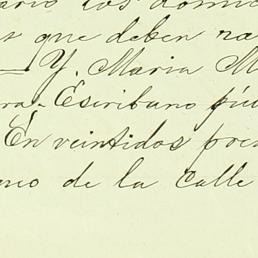 ario los domici
s que deben ra
= Y, Maria M
ra - Escribano púb
En veintidos
ero de la calle